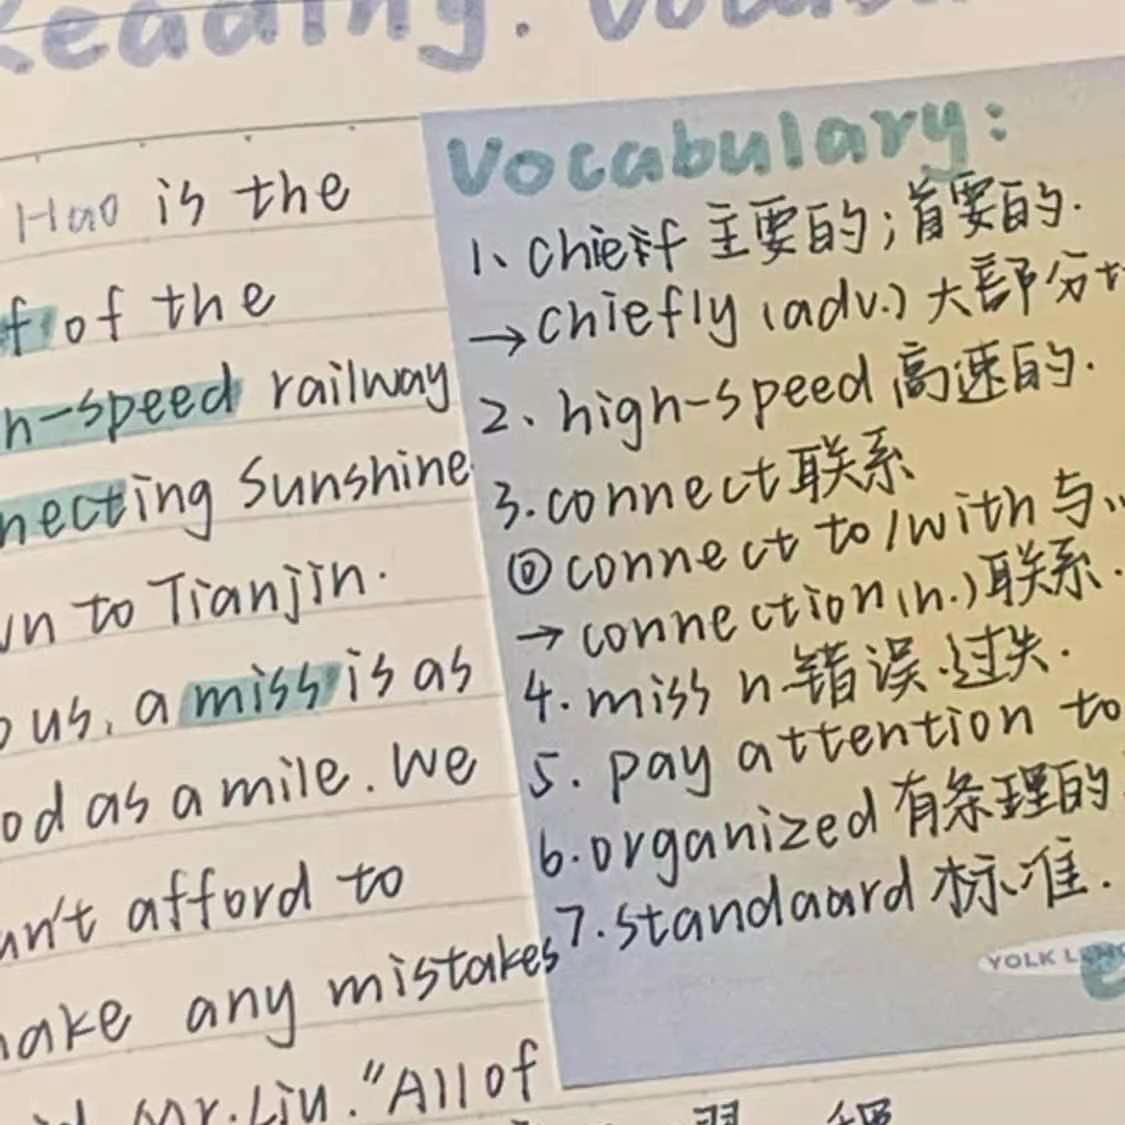 Reading. Vocabu
Hao is the
f of the
h-speed railway
necting Sunshine
wn to Tianjin.
o us, a miss is as
od as a mile. We
an't afford to
make any mistakes
Mr. Liu. "All of
Vocabulary:
1、chief 主要的；首要的.
→ chiefly (adv.) 大部分地
2、high-speed 高速的.
3. connect 联系
① connect to/with 与…
→ connection (n.) 联系.
4. miss n. 错误.过失.
5. pay attention to
6. organized 有条理的
7. standaard 标准.
YOLK